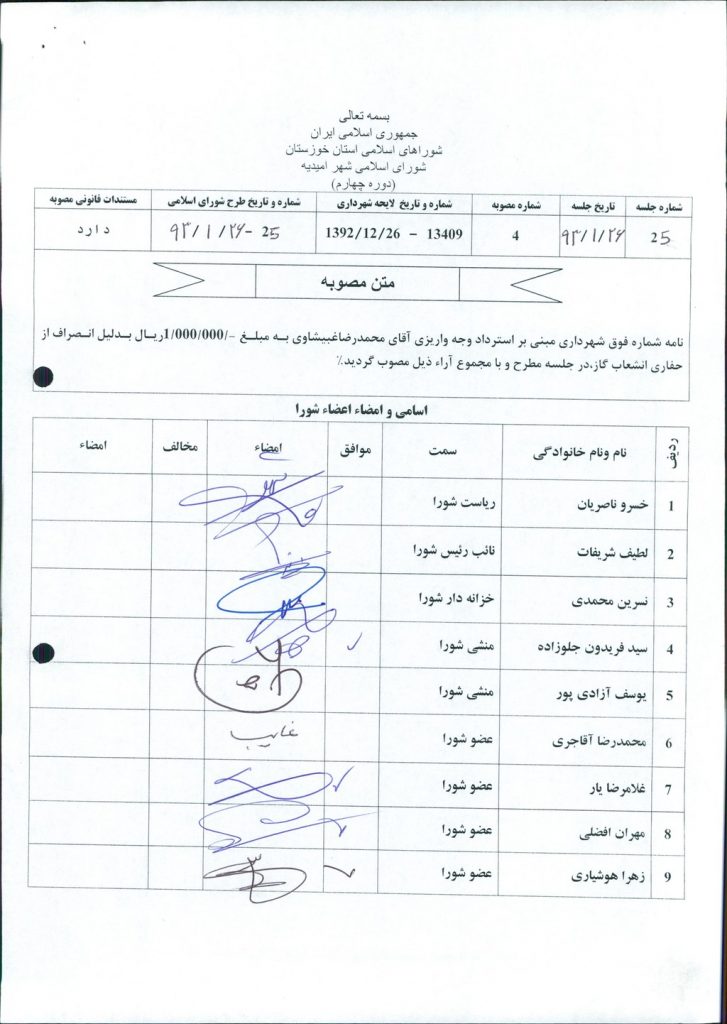 بسمه تعالی
جمهوری اسلامی ایران
شوراهای اسلامی استان خوزستان
شورای اسلامی شهر امیدیه
(دوره چهارم)
شماره جلسه تاریخ جلسه شماره مصوبه شماره و تاریخ لایحه شهرداری شماره و تاریخ طرح شورای اسلامی مستندات قانونی مصوبه
25 ۹۳/۱/۲۶ 4 13409 – 1392/12/26 25 -۹۳/۱/۲۶ دارد
متن مصوبه
نامه شماره فوق شهرداری مبنی بر استرداد وجه واریزی آقای محمدرضاغبیشاوی به مبلغ -/1/000/000ریال بدلیل انصراف از
حفاری انشعاب گاز،در جلسه مطرح و با مجموع آراء ذیل مصوب گردید.٪
اسامی و امضاء اعضاء شورا
ردیف نام ونام خانوادگی سمت موافق امضاء مخالف امضاء
1 خسرو ناصریان ریاست شورا
2 لطیف شریفات نائب رئیس شورا
3 نسرین محمدی خزانه دار شورا
4 سید فریدون جلوزاده منشی شورا
5 یوسف آزادی پور منشی شورا
6 محمدرضا آقاجری عضو شورا غایب
7 غلامرضا یار عضو شورا
8 مهران افضلی عضو شورا
9 زهرا هوشیاری عضو شورا